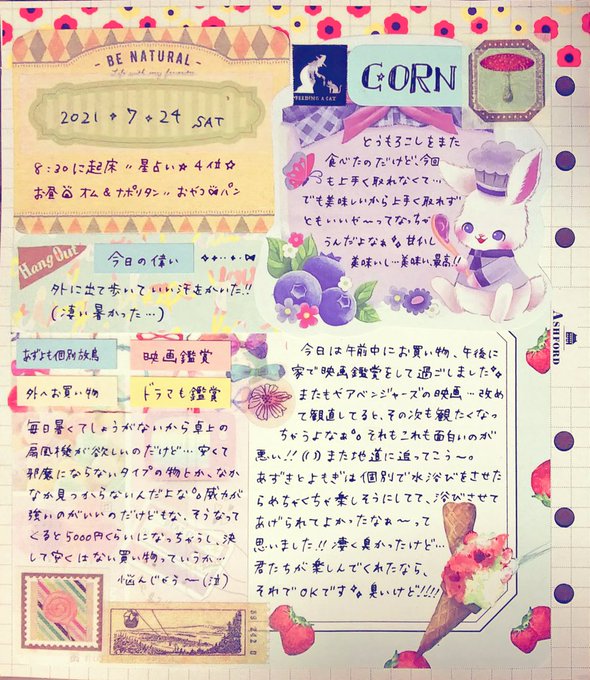 - BE NATURAL -
Life with my favorite
2021 ✧ 7 ✧ 24 SAT
8:30に起床〃星占い☆4位☆
お昼 オム&ナポリタン〃おやつ パン
FEEDING A CAT
CORN
とうもろこしをまた
食べたのだけど、今回
も上手く取れなくて…
でも美味しいから上手く取れず
ともいいぜ〜ってなっちゃ
うんだよなぁ。甘いし
美味いし…美味い、最高!!
Hang Out
今日の偉い
外に出て歩いていい汗をかいた!!
(凄い暑かった…)
あずよも個別放鳥
映画鑑賞
外へお買い物
ドラマも鑑賞
毎日暑くてしょうがないから卓上の
扇風機が欲しいのだけど…安くて
邪魔にならないタイプの物とか、なか
なか見つからないんだよな。威力が
強いのがいいのだけどもな、そうなって
くると5000円くらいになっちゃうし、決
して安くはない買い物っていうか…
悩んじゃう〜(泣)
ASHFORD
今日は午前中にお買い物、午後に
家で映画鑑賞をして過ごしました
またもやアベンジャーズの映画…改め
て観直してると、その次も観たくなっ
ちゃうよなぁ。それもこれも面白いのが
悪い!!()また地道に追ってこう〜。
あずきとよもぎは個別で水浴びをさせた
らめちゃくちゃ楽しそうにしてて、浴びさせて
あげられてよかったなぁ〜って
思いました!!凄く臭かったけど…
君たちが楽しんでくれたなら、
それでOKです 臭いけど!!!!